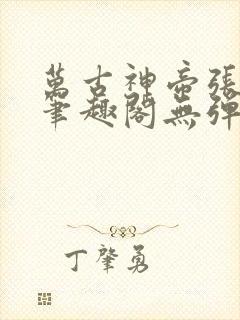 萬古神帝張
筆趣閣無彈
丁肇勇